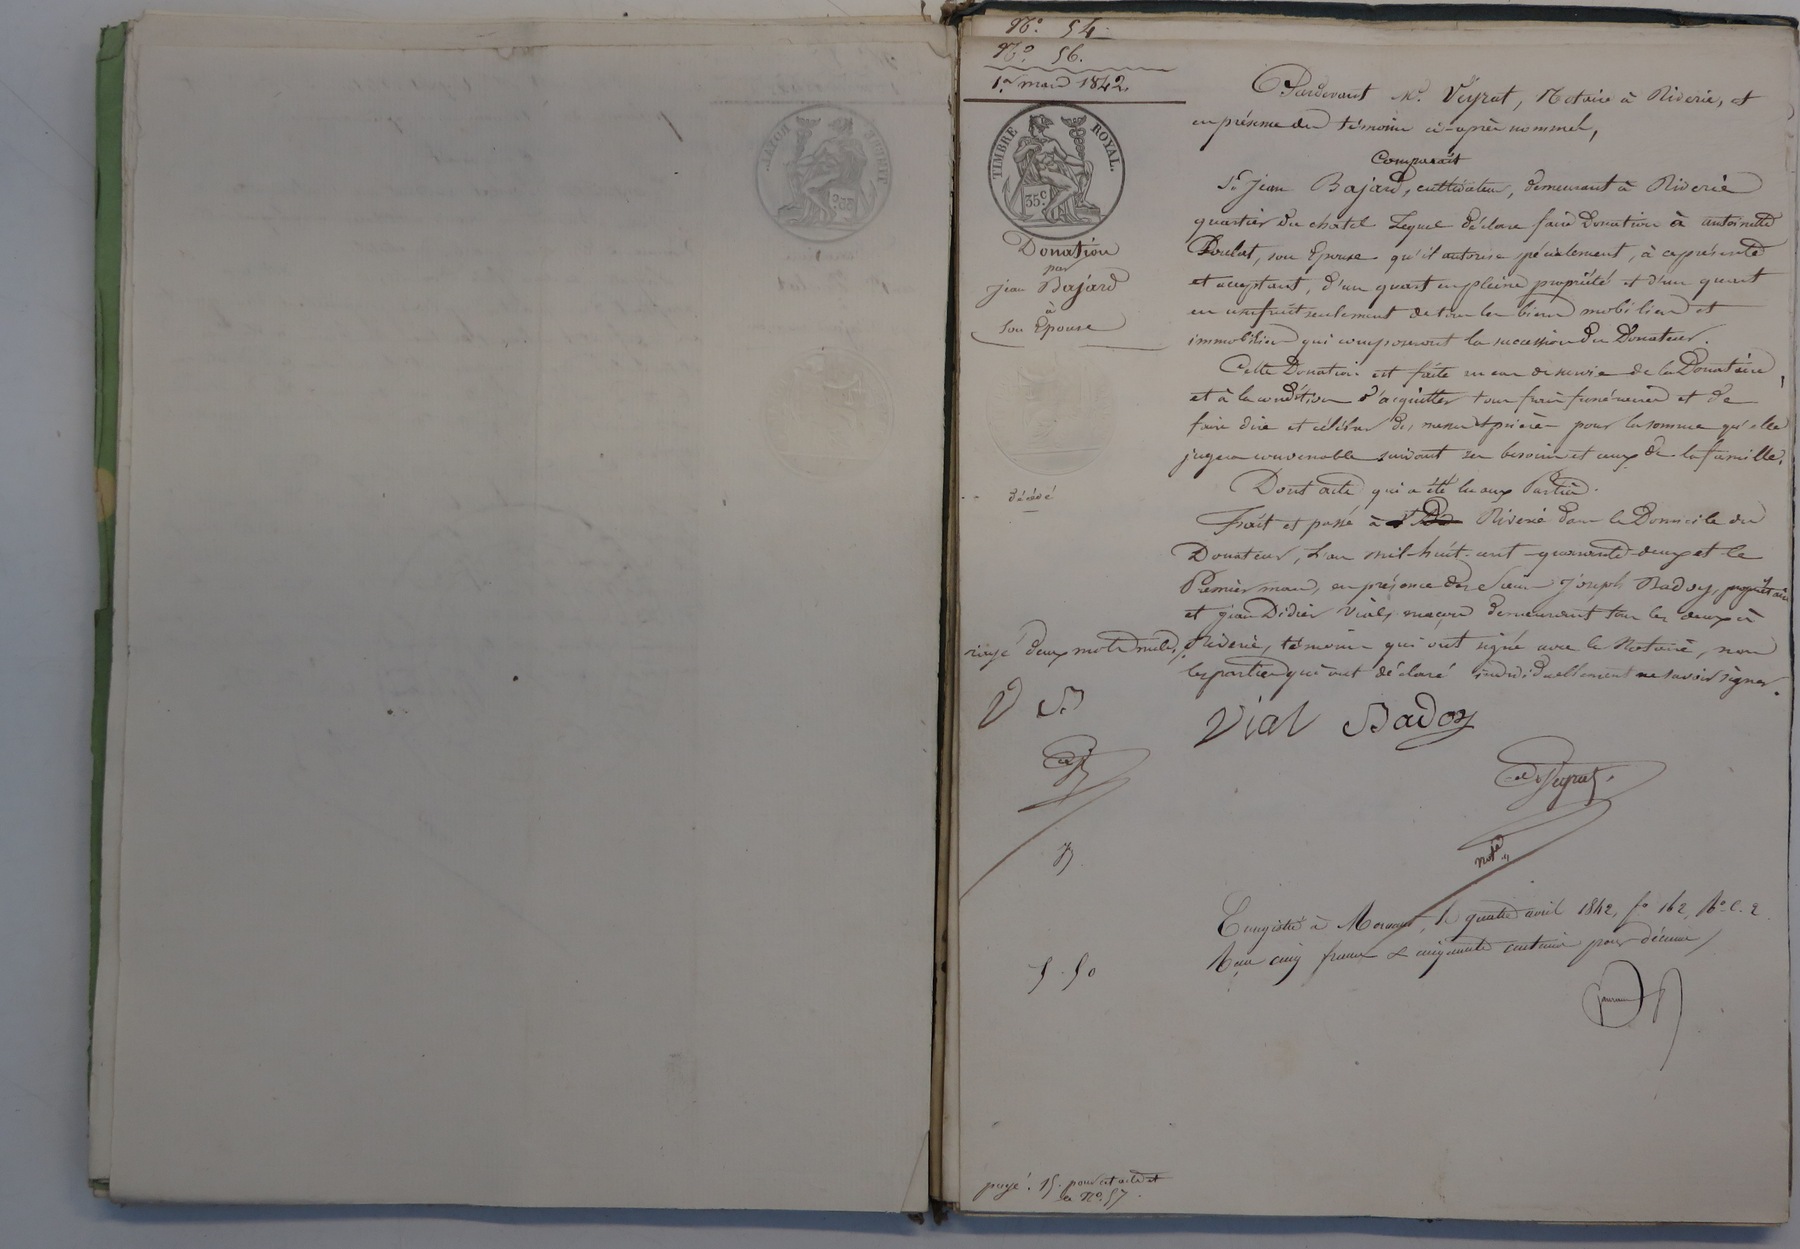 N.o 54.
N.o 56.
1.er mars 1842.
TIMBRE ROYAL.
35.c
Donation
par
jean Bajard
à
Son Epouse
décédé
Pardevant M.e Veyrat, Notaire à Riverie, et
en présence des témoins ci-après nommés,
Comparait
S.r Jean Bajard, cultivateur, demeurant à Riverie
quartier du chatel Lequel déclare faire Donation à antoinette
Poulat, son Epouse qu'il autorise spécialement, à ce présente
et acceptant, d'un quart en pleine propriété et d'un quart
en usufruit seulement de tous les biens mobiliers et
immobiliers qui composeront la succession du Donateur.
Cette Donation est faite en cas de survie de la Donataire,
et à la condition d'acquitter tous frais funéraires et de
faire dire et célébrer des messes et prières pour la somme qu'elle
jugera convenable suivant ses besoins et ceux de la famille.
Dont acte qui a été lu aux Parties.
Fait et passé à Riverie dans le Domicile du
Donateur, L'an mil-huit-cent-quarante-deux et le
Premier mars, en présence des Sieurs Joseph Badoy, propriétaire
et jean Didier Vial, maçon demeurant tous les deux à
Riverie, témoins qui ont signé avec le Notaire, non
les parties qui ont déclaré individuellement ne savoir signer.
rayé deux mots nuls,
V B
Vial Badoy
Veyrat
no.re
Enregistré à Mornant, le quatre avril 1842, f.o 162, R.o C. 2.
Reçu cinq francs & cinquante centimes pour décime
5. 50
payé. 15. pour cet acte et
le N.o 57.